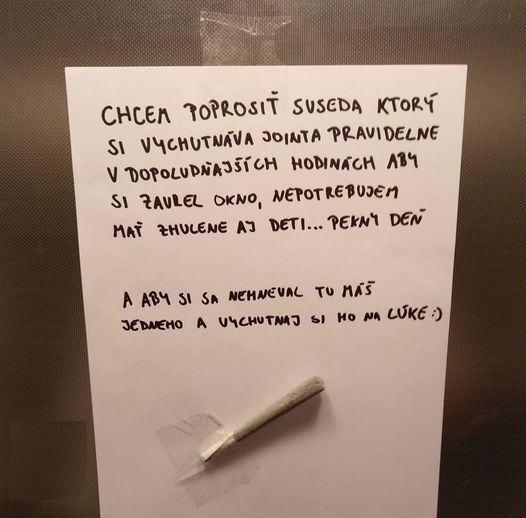 CHCEM POPROSIŤ SUSEDA KTORÝ
SI VYCHUTNÁVA JOINTA PRAVIDELNE
V DOPOLUDŇAJŠÍCH HODINÁCH ABY
SI ZAVREL OKNO, NEPOTREBUJEM
MAŤ ZHULENE AJ DETI... PEKNÝ DEŇ
A ABY SI SA NEHNEVAL TU MÁŠ
JEDNEHO A VYCHUTNAJ SI HO NA LÚKE :)